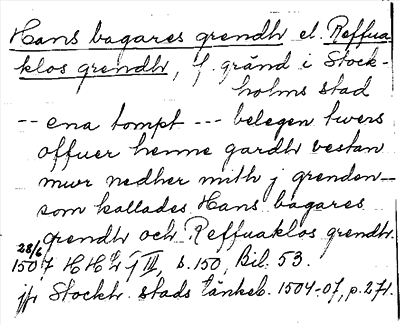 Hans bagares grendh el. Reffua
klos grendh, f. gränd i Stock-
holms stad
-- ena tompt --- belegen twers
offuer henne gardh vestan
mwr nedher mith j grenden—
som kallades Hans bagares
grendh och Reffuaklos grendh.
28/6
1507 HH III, s. 150, Bil. 53.
jfr Stockh. stads tänkeb. 1504-07, p. 271.